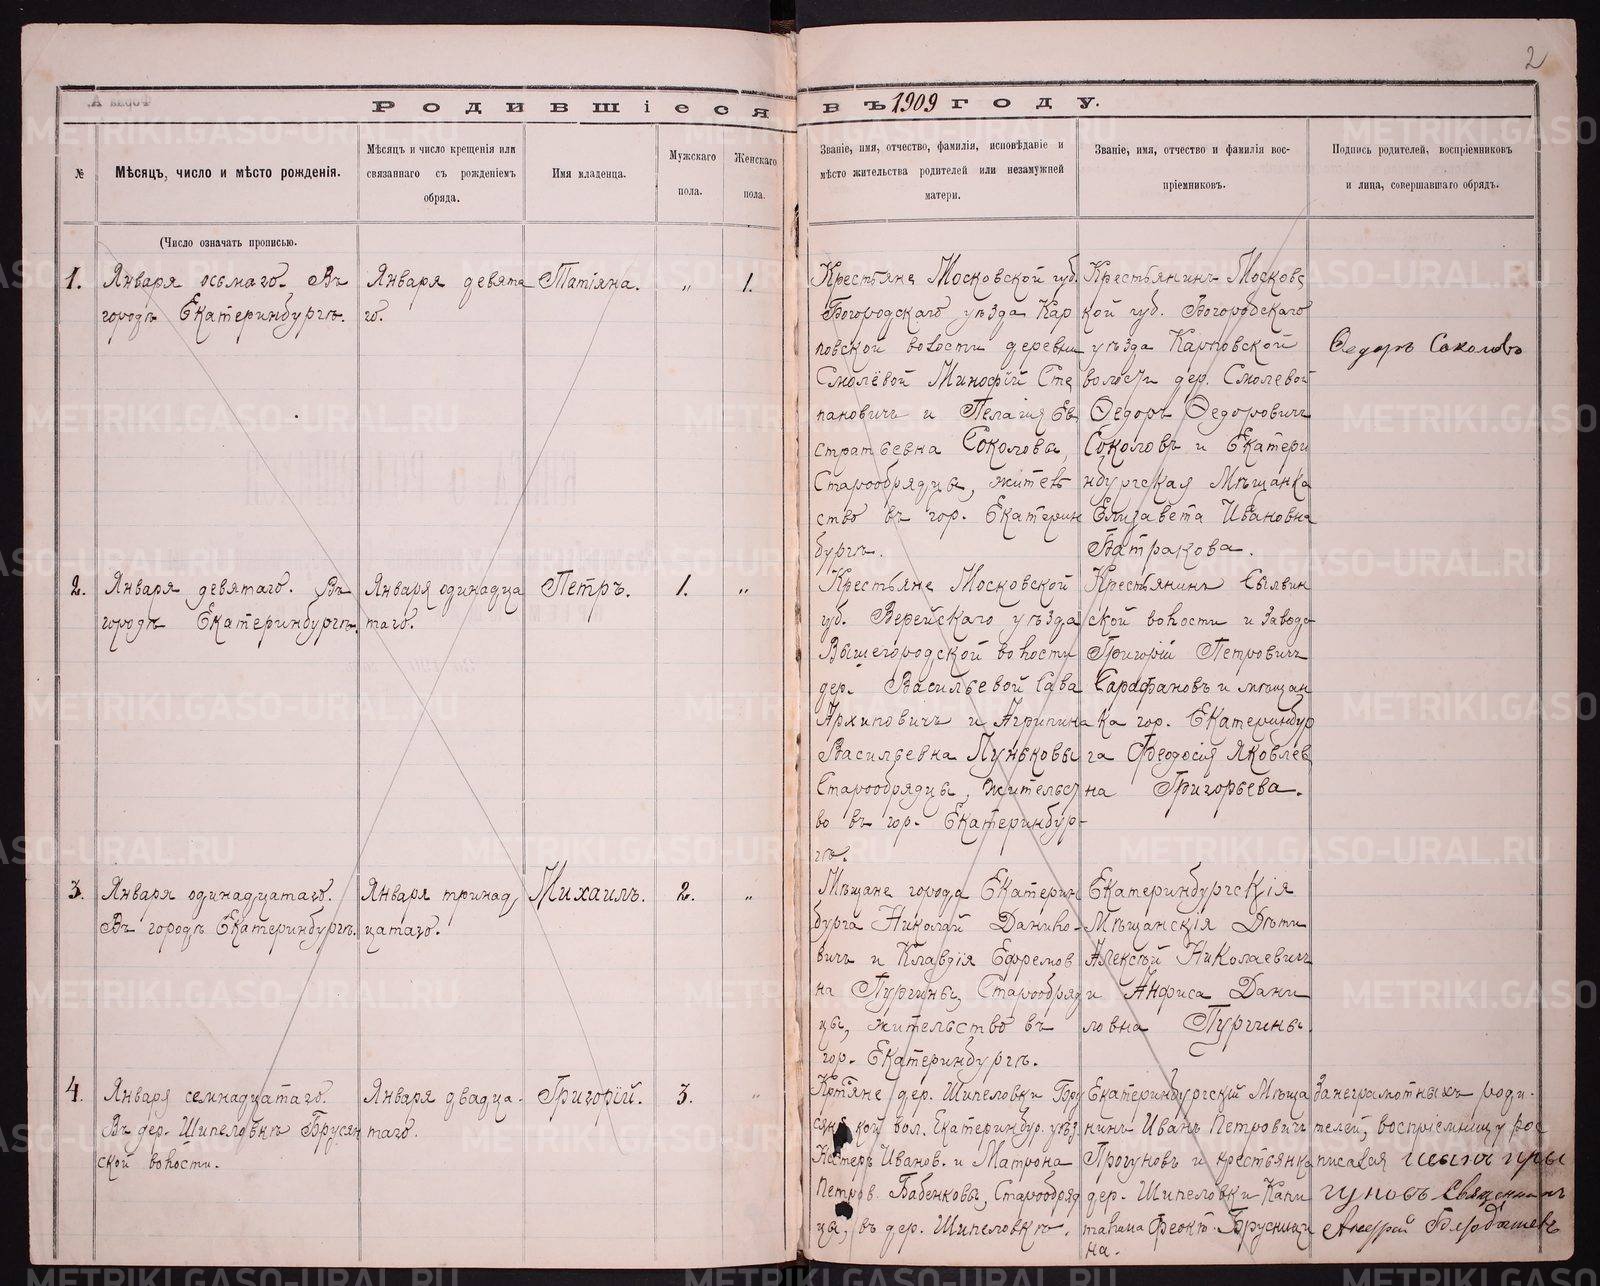 2
Родившіеся въ 1909 году.
№
Мѣсяцъ, число и мѣсто рожденія.
Мѣсяцъ и число крещенія или
связаннаго съ рожденіемъ
обряда.
Имя младенца.
Мужскаго
пола.
Женскаго
пола.
Званіе, имя, отчество, фамилія, исповѣданіе и
мѣсто жительства родителей или незамужней
матери.
Званіе, имя, отчество и фамилія вос-
пріемниковъ.
Подпись родителей, воспріемниковъ
и лица, совершавшаго обрядъ.
(Число означать прописью.
1.
Января осьмаго. Въ
городѣ Екатеринбургѣ.
Января девята
го.
Татіяна.
„
1.
Крестьяне Московской губ.
Богородскаго уѣзда Кар
повской волости деревни
Смолёвой Минофій Сте
пановичъ и Пелагія Ев
стратьевна Соколовы,
Старообрядцы, житель
ство въ гор. Екатерин
бургѣ.
Крестьянинъ Московс
кой губ. Богородскаго
уѣзда Карповской
волости дер. Смолевой
Ѳедоръ Ѳедоровичъ
Соколовъ и Екатери
нбургская Мѣщанка
Елизавета Ивановна
Батракова.
Ѳедоръ Соколовъ
2.
Января девятаго. Въ
городѣ Екатеринбургѣ.
Января одинадца
таго.
Петръ.
1.
„
Крестьяне Московской
губ. Верейскаго уѣзда
Вышегородской волости
дер. Васильевой Сава
Архиповичъ и Агрипина
Васильевна Пуньковы
Старообрядцы, жительст
во въ гор. Екатеринбур-
гѣ.
Крестьянинъ Сылвин
ской волости и завода
Григорій Петровичъ
Сарафановъ и мѣщан
ка гор. Екатеринбур
га Феодосія Яковлев
на Григорьева.
3.
Января одинадцатаго.
Въ городѣ Екатеринбургѣ.
Января тринад
цатаго.
Михаилъ.
2.
„
Мѣщане города Екатерин
бурга Николай Данило-
вичъ и Клавдія Ефремов
на Пургины, Старообряд
цы, жительство въ
гор. Екатеринбургѣ.
Екатеринбургскія
Мѣщанскія Дѣти
Алексѣй Николаевичъ
и Анфиса Дани
ловна Пургины.
4.
Января семнадцатаго.
Въ дер. Шипеловкѣ Брусян
ской волости.
Января двадца-
таго.
Григорій.
3.
„
Крт̃яне дер. Шипеловки Бру
сянской вол. Екатеринбур. уѣз.
Нестеръ Иванов. и Матрона
Петров. Бабенковы, Старообряд
цы, въ дер. Шипеловкѣ.
Екатеринбургскій Мѣща
нинъ Иванъ Петровичъ
Прогуновъ и крестьянка
дер. Шипеловки Капи
толина Феокт. Брусницы
на.
За неграмотныхъ роди-
телей, воспріемницу рос
писался
Священникъ
Андрей